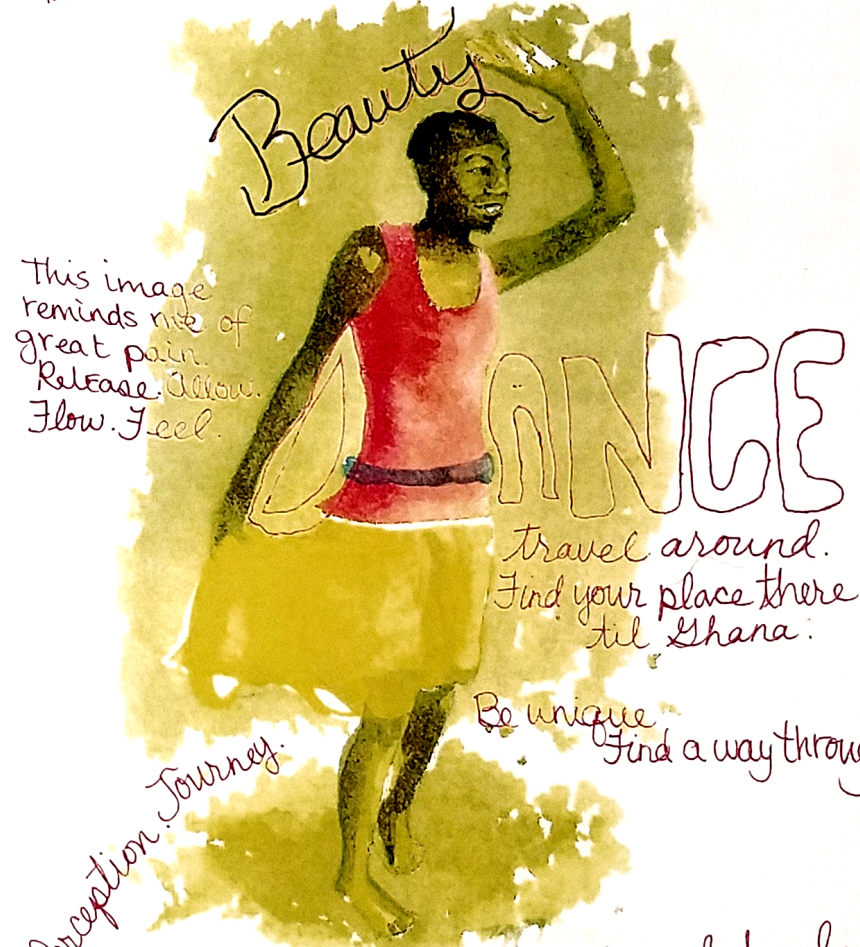 Beauty
This image
reminds me of
great pain.
Release. Allow.
Flow. Feel.
DANCE
travel around.
Find your place there
til Ghana.
Be unique
Find a way throu
Perception. Journey.